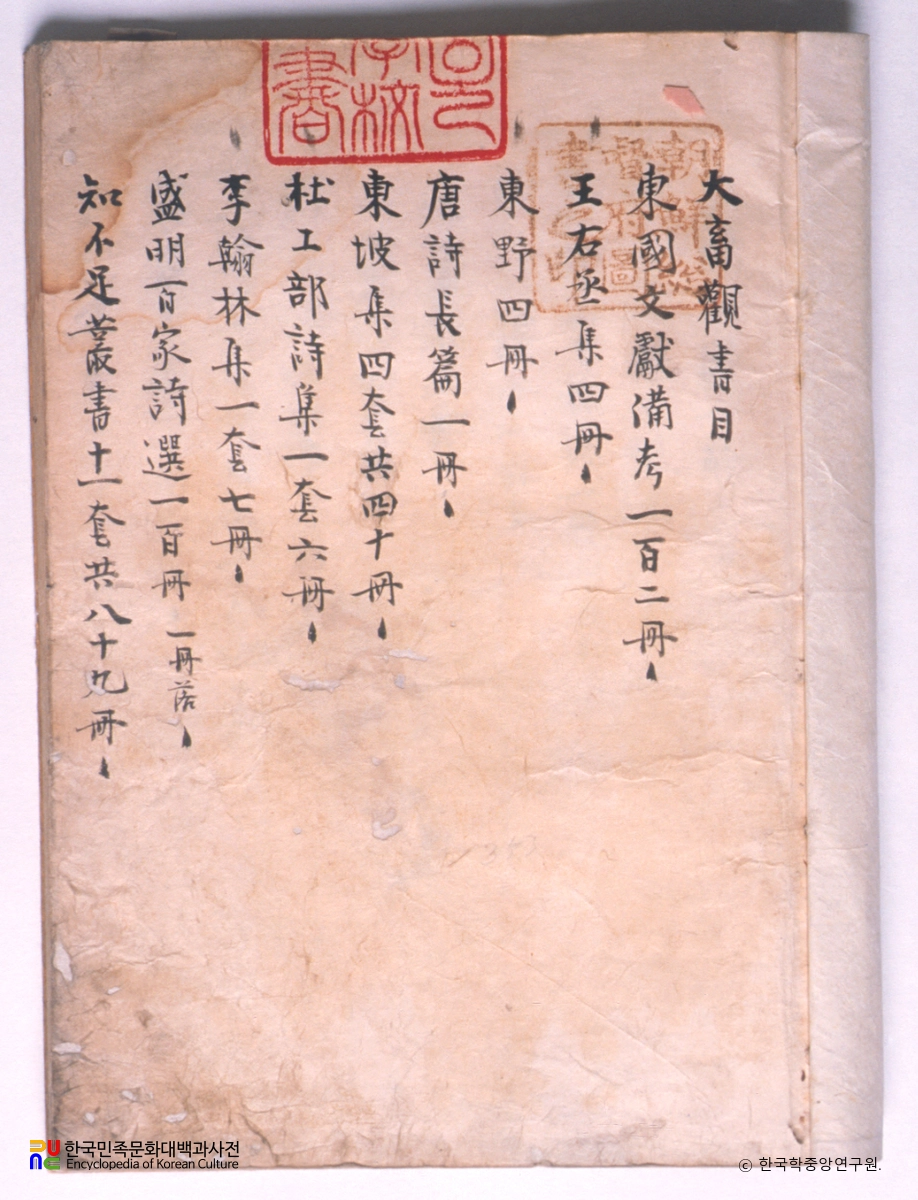 大畜觀書目
東國文獻備考一百二冊
王右丞集四冊
東野四冊
唐詩長篇一冊
東坡集四套共四十冊
杜工部詩集一套六冊
李翰林集一套七冊
盛明百家詩選一百冊 一冊落
知不足叢書十一套共八十九冊
朝鮮總督府圖書之印
學校
書
한국민족문화대백과사전
Encyclopedia of Korean Culture
© 한국학중앙연구원.